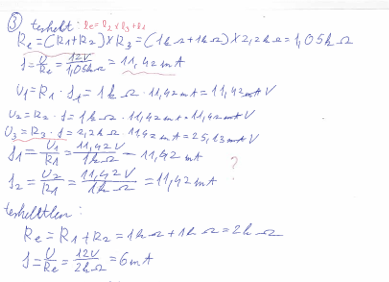 ③ terhelt: Re=R2×R3+R1
Re=(R1+R2)×R3=(1kΩ+1kΩ)×2,2kΩ=1,05kΩ
I=U/Re=12V/1,05kΩ=11,42mA
U1=R1·I1=1kΩ·11,42mA=11,42mAV
U2=R2·I=1kΩ·11,42mA=11,42mAV
U3=R3·I=2,2kΩ·11,42mA=25,13mAV
I1=U1/R1=11,42V/1kΩ=11,42mA
I2=U2/R1=11,42V/1kΩ=11,42mA ?
terheletlen:
Re=R1+R2=1kΩ+1kΩ=2kΩ
I=U/Re=12V/2kΩ=6mA